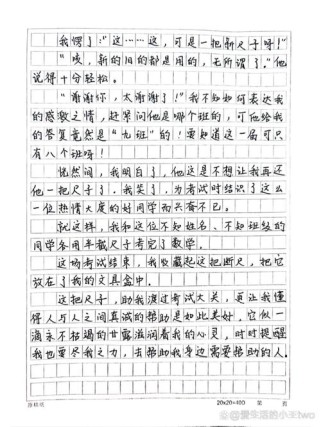 我愣了:"这……这,可是一把新尺子呀!"
"咳,新的旧的都是用的,无所谓了。"他
说得十分轻松。
"谢谢你,太谢谢了!"我不知如何表达我
的感激之情,赶紧问他是哪个班的,可他给我
的答复竟然是"九班"的!要知道这一届可只
有八个班呀!
恍然间,我明白了,他这是不想让我再还
他一把尺子了。我笑了,为考试时结识了这么
一位热情大度的好同学而兴奋不已。
就这样,我和这位不知姓名、不知班级的
同学各用半截尺子考完了数学。
这场考试结束,我收藏起这把断尺,把它
放在了我的文具盒中。
这把尺子,助我渡过考试大关,更让我懂
得人与人之间真诚的帮助是如此美好,它似一
滴永不枯竭的甘露滋润着我的心灵,时时提醒
我也要尽我之力,去帮助我身边需要帮助的人。
20×20=400 第 页
@爱生活的小王two